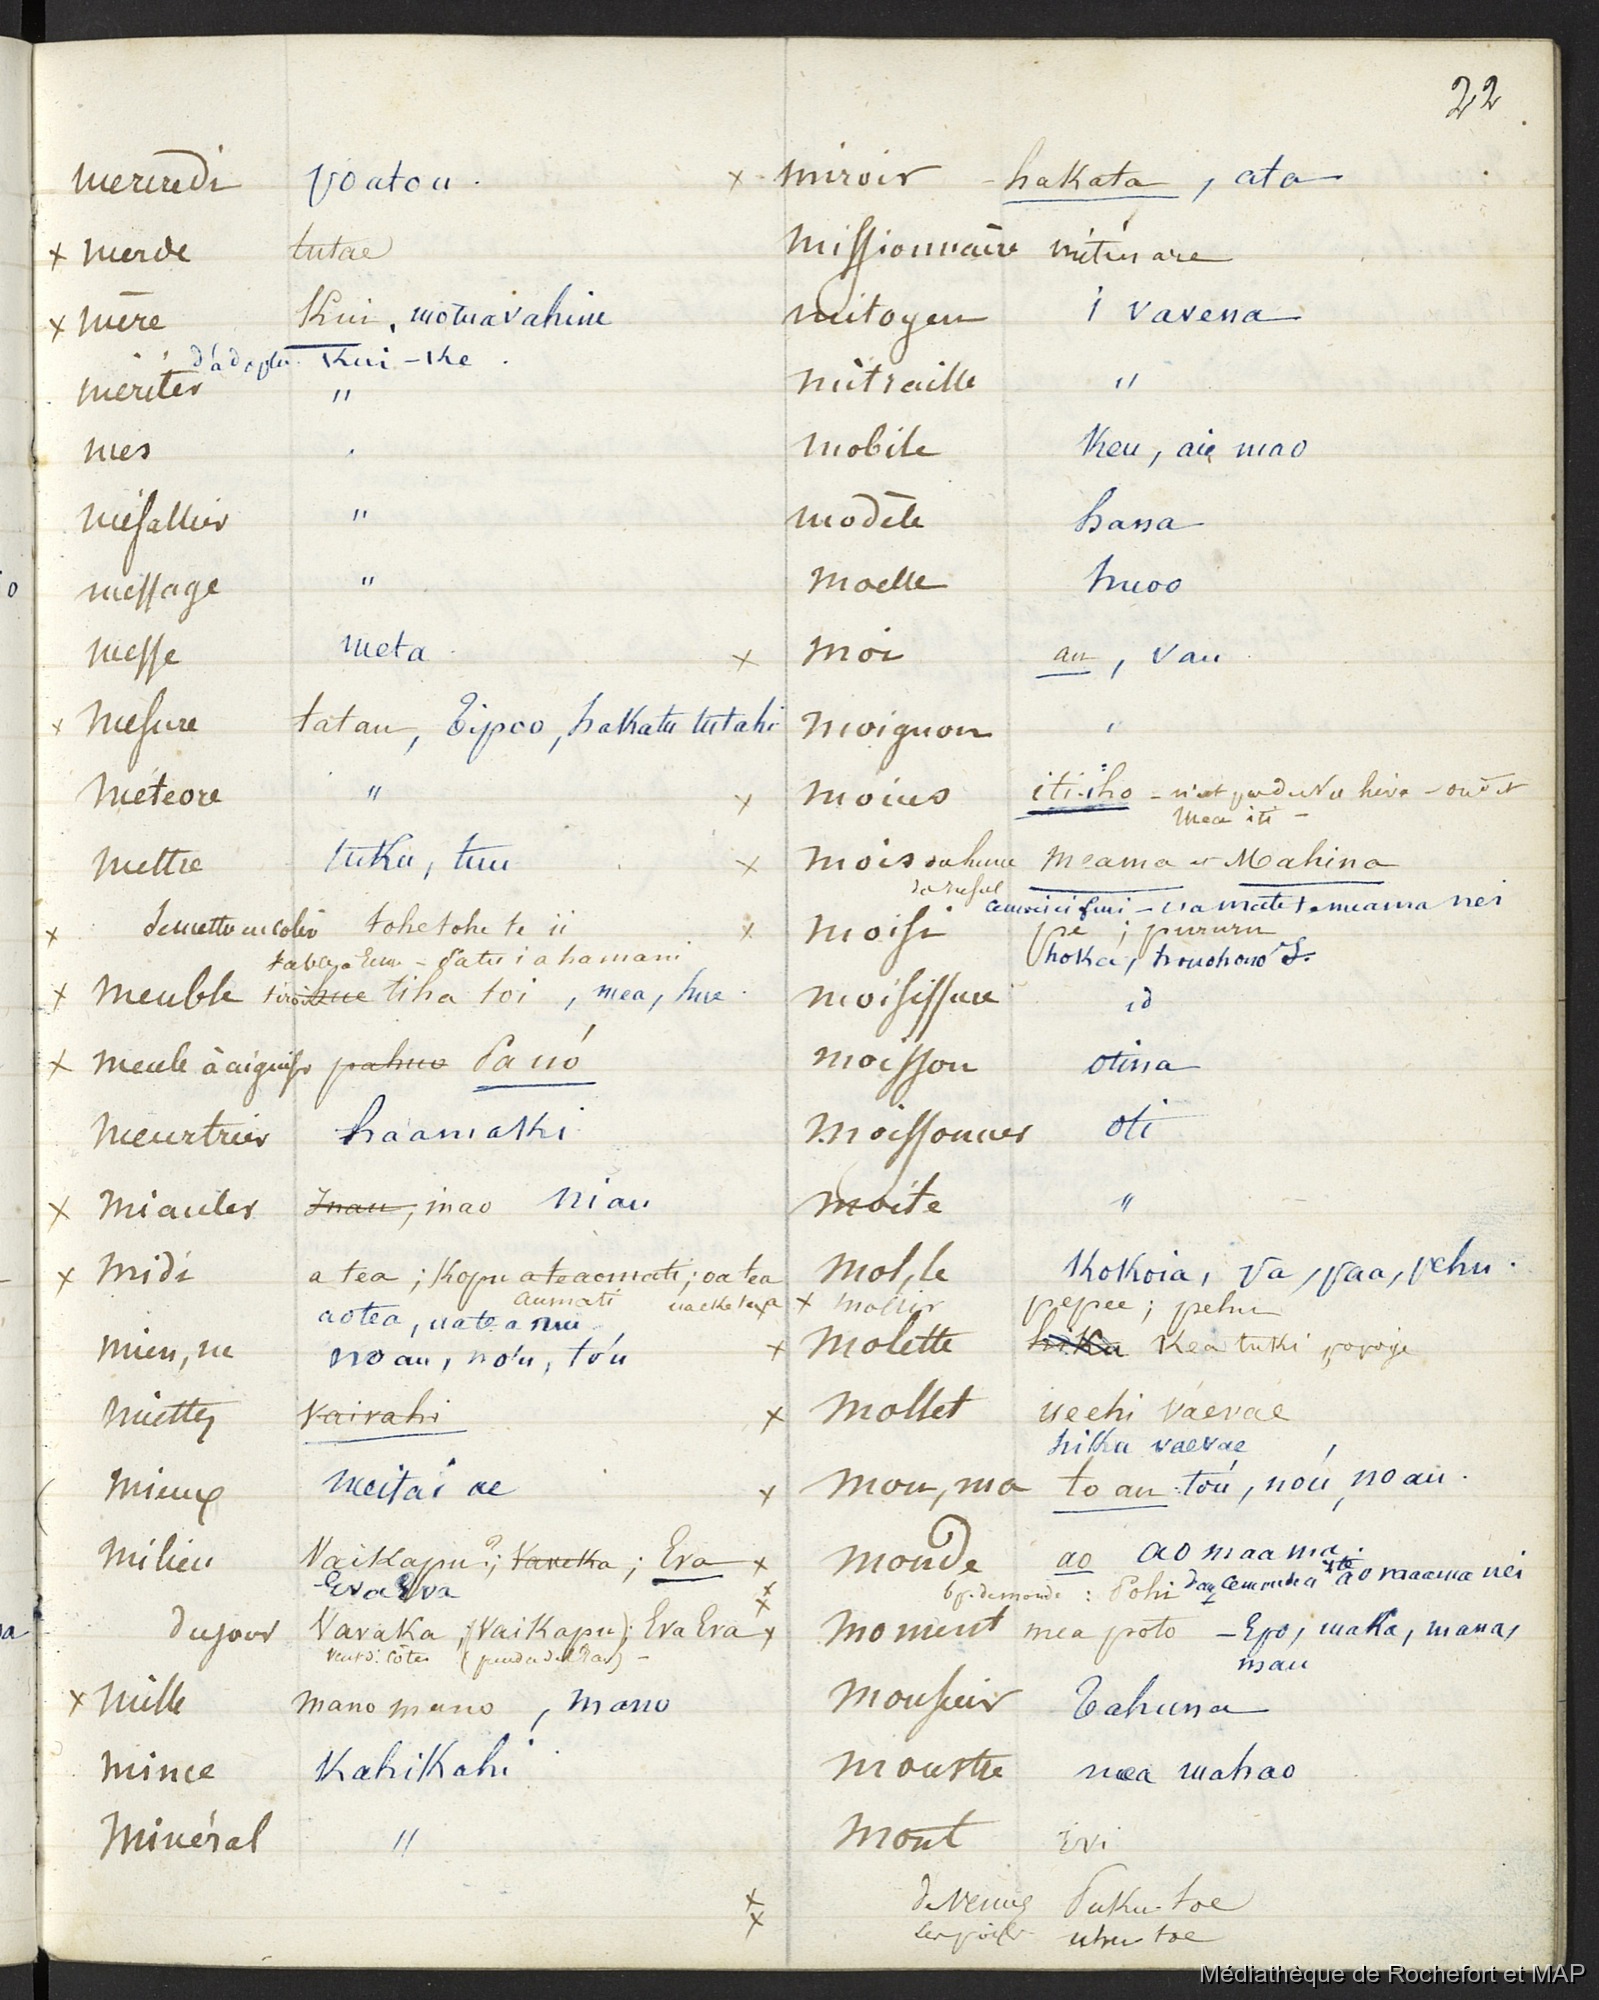 22
mercredi poatou.
x merde tutae
x mère Kui, motua vahine
d'adoption. Kui-Ke.
mériter "
mes .
mésallier "
message "
messe meta.
x mesure tatau, Tipoo, hakatu tutahi
météore "
mettre tuku, tuu
x se mettre en colère tohetohe te ii
Patu i a hamani
x meuble hue tiha toi, mea, hue.
x meule à aiguiser pahuo Panó
meurtrier haamaki
x miauler Inau, inao niau
x midi a tea; Kopu ateaomati; oatea
aumati
aotea, uatea nui
mien, ne no au, no'u, to'u
miette Vaivahi
mieux meitai ae
milieu Vaikapu?; Vaveka; Eva
Eva Eva
du jour Vavaka, (Vaikapu); Eva Eva
x mille mano mano, mano
mince Kahikahi
minéral "
x miroir - hakata, ata
missionnaire mitinare
mitoyen i vavena
mitraille "
mobile Keu, aie mao
modèle hana
moelle huoo
x moi au, vau
moignon "
x moins iti iho - n'est pas de Nu hiva - on dit
mea iti -
x mois ou lune Meama et Mahina
ua mate te meama nei
x moisi pe; pururu
hoka, houohouo S.
moisissure id
moisson otina
moissonner oti
moite "
mol, le Kokoia, Va, paa, pehu.
x mollir pepee; pehu
x molette hika Kea tuki popoi
x mollet ueehi vaevae
hiku vaevae
x mon, ma to au tóu, nóu, no au.
x monde ao ao maama.
bp. de monde : Pohi dans ce monde i te ao maama nei
x moment mea poto - Epo, maka, mana,
mau
monsieur Tahuna
monstre mea mahao
mont Evi
x de Venus Puku toe
x uhu toe
Médiathèque de Rochefort et MAP